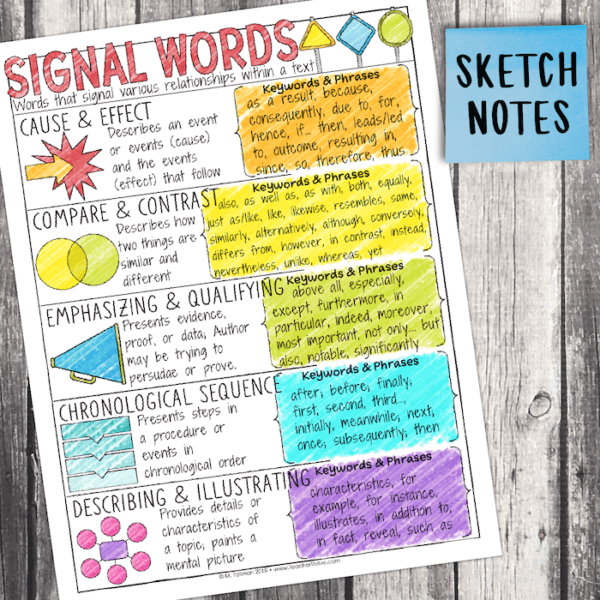 SIGNAL WORDS
Words that signal various relationships within a text
SKETCH
NOTES
CAUSE & EFFECT
Describes an event
or events (cause)
and the events
(effect) that follow
Keywords & Phrases
as a result, because,
consequently, due to, for,
hence, if... then, leads/led
to, outcome, resulting in,
since, so, therefore, thus
COMPARE & CONTRAST
Describes how
two things are
similar and
different
Keywords & Phrases
also, as well as, as with, both, equally,
just as/like, like, likewise, resembles, same,
similarly, alternatively, although, conversely,
differs from, however, in contrast, instead,
nevertheless, unlike, whereas, yet
EMPHASIZING & QUALIFYING
Presents evidence,
proof, or data; Author
may be trying to
persudae or prove.
Keywords & Phrases
above all, especially,
except, furthermore, in
particular, indeed, moreover,
most important, not only... but
also, notable, significantly
CHRONOLOGICAL SEQUENCE
Presents steps in
a procedure or
events in
chronological order
Keywords & Phrases
after; before; finally,
first, second, third...,
initially, meanwhile; next;
once; subsequently; then
DESCRIBING & ILLUSTRATING
Provides details or
characteristics of
a topic; paints a
mental picture
Keywords & Phrases
characteristics, for
example, for instance,
illustrates, in addition to,
in fact, reveal, such as
© M. Tallman 2018 • www.TeacherThrive.com